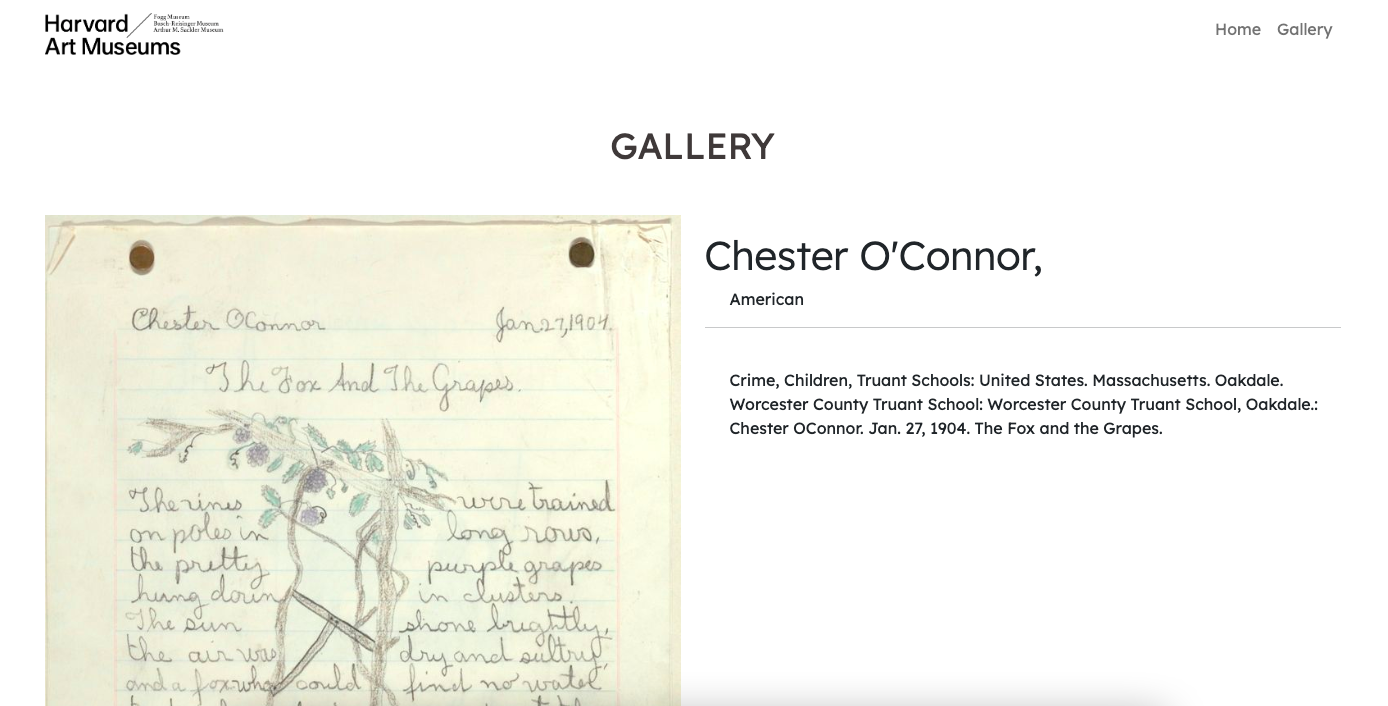 Harvard
Art Museums
Fogg Museum
Busch-Reisinger Museum
Arthur M. Sackler Museum
Home Gallery
GALLERY
Chester OConnor Jan 27, 1904.
The Fox And The Grapes.
The vines were trained
on poles in long rows,
the pretty purple grapes
hung down in clusters.
The sun shone brightly,
the air was dry and sultry,
and a fox who could find no water
Chester O'Connor,
American
Crime, Children, Truant Schools: United States. Massachusetts. Oakdale.
Worcester County Truant School: Worcester County Truant School, Oakdale.:
Chester OConnor. Jan. 27, 1904. The Fox and the Grapes.